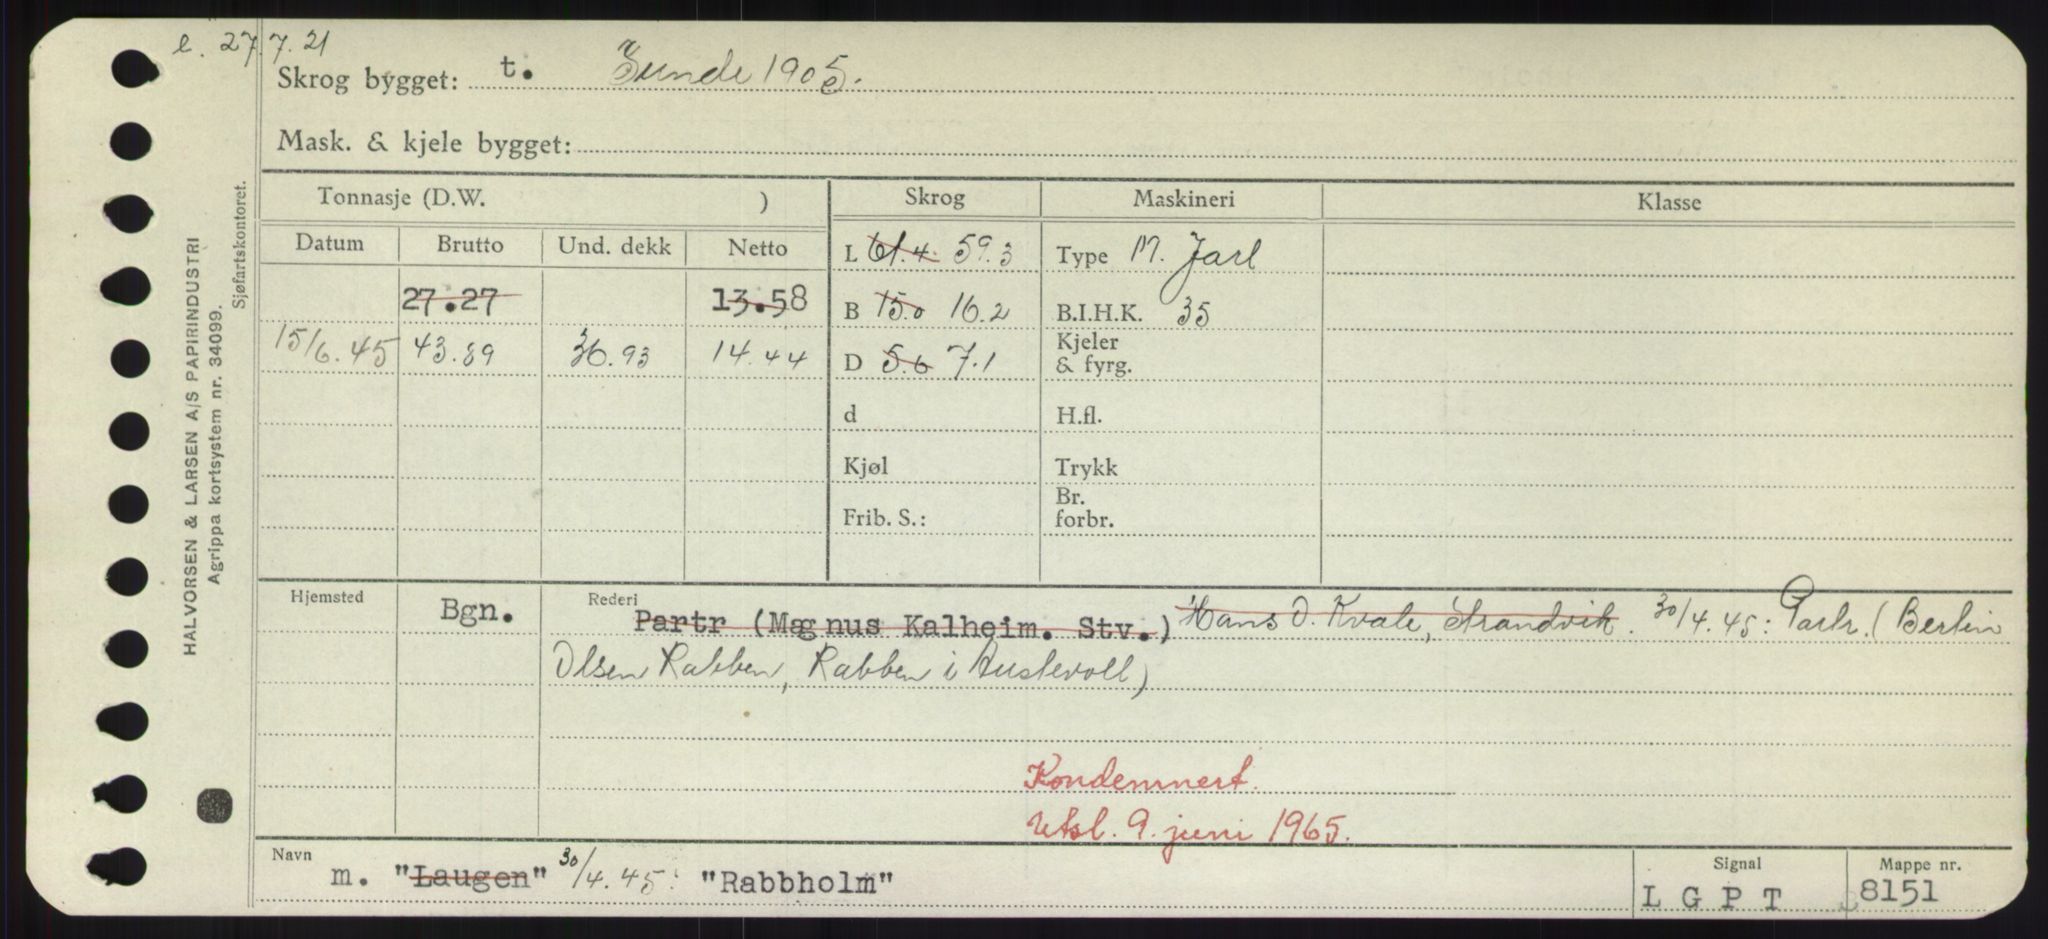 e. 27.7.21
Skrog bygget: t. Sunde 1905.
Mask. & kjele bygget:
Tonnasje (D.W. )
Skrog
Maskineri
Klasse
Datum
Brutto
Und. dekk
Netto
L 61.4. 59.3
Type M. Jarl
27.27
13.58
B 15.0 16.2
B.I.H.K. 35
15/6.45
43.89
36.93
14.44
D 5.6 7.1
Kjeler
& fyrg.
d
H.fl.
Kjøl
Trykk
Frib. S.:
Br.
forbr.
HALVORSEN & LARSEN A/S PAPIRINDUSTRI
Agrippa kortsystem nr. 34099.
Sjøfartskontoret.
Hjemsted
Bgn.
Rederi
Partr (Magnus Kalheim. Stv.) Hans O. Kvale, Strandvik. 30/4.45: Partr. (Bertin
Olsen Rabben, Rabben i Austevoll)
Kondemnert.
Utsl. 9. juni 1965.
Navn
m. "Laugen" 30/4.45: "Rabbholm"
Signal
L G P T
Mappe nr.
8151